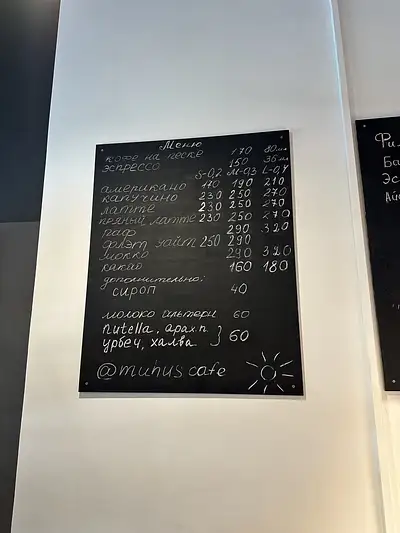 Меню
кофе на песке 170 80мл
эспрессо 150 36мл
S-0,2 M-0,3 L-0,4
американо 170 190 210
капучино 230 250 270
латте 230 250 270
пряный латте 230 250 270
раф 290 320
флэт уайт 250 290
мокко 290 320
какао 160 180
дополнительно:
сироп 40
молоко альтерн 60
nutella, арах.п.
урбеч, халва } 60
@muhus cafe
Фи
Ба
Эс